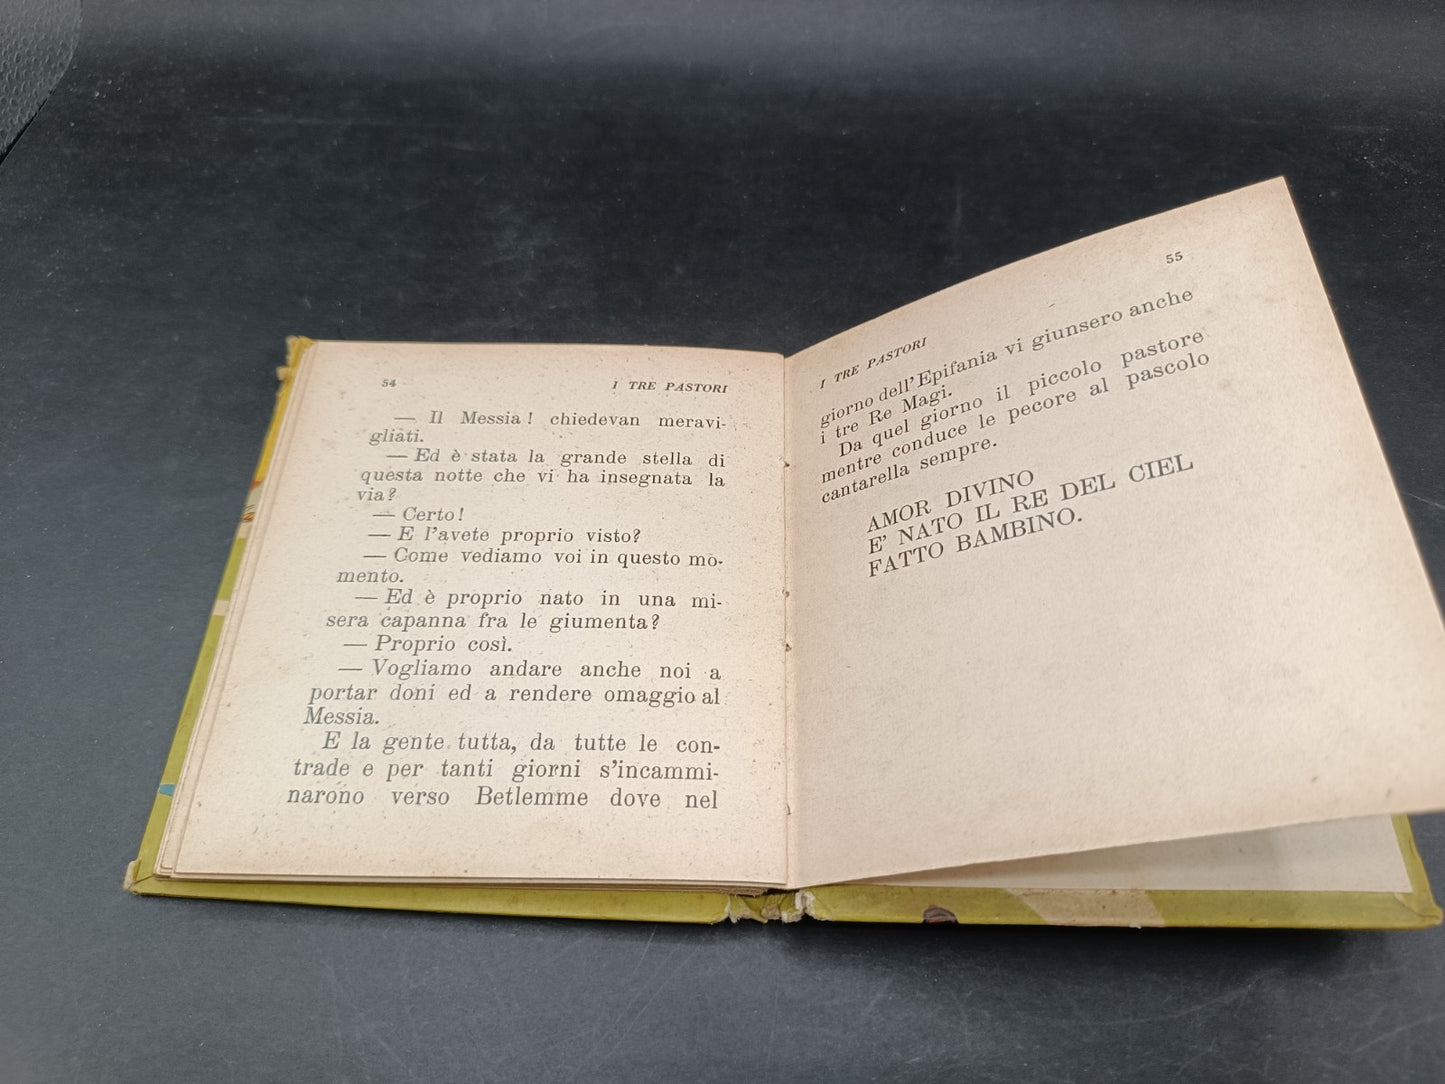 54
I TRE PASTORI
— Il Messia! chiedevan meravi-
gliati.
— Ed è stata la grande stella di
questa notte che vi ha insegnata la
via?
— Certo!
— E l'avete proprio visto?
— Come vediamo voi in questo mo-
mento.
— Ed è proprio nato in una mi-
sera capanna fra le giumenta?
— Proprio così.
— Vogliamo andare anche noi a
portar doni ed a rendere omaggio al
Messia.
E la gente tutta, da tutte le con-
trade e per tanti giorni s'incammi-
narono verso Betlemme dove nel
I TRE PASTORI
55
giorno dell'Epifania vi giunsero anche
i tre Re Magi.
Da quel giorno il piccolo pastore
mentre conduce le pecore al pascolo
cantarella sempre.
AMOR DIVINO
E' NATO IL RE DEL CIEL
FATTO BAMBINO.